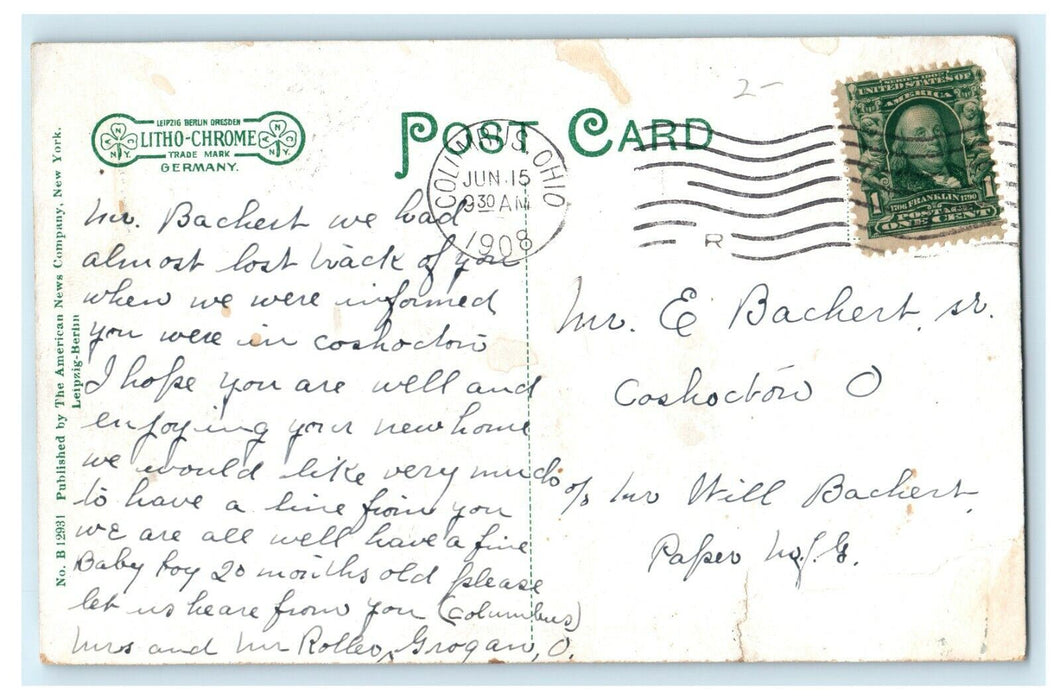 LEIPZIG BERLIN DRESDEN
LITHO-CHROME
TRADE MARK
GERMANY.
N
A C
N.Y.
N
A C
N.Y.
POST CARD
2-
COLUMBUS, OHIO
JUN. 15
9 30 AM
1908
R
SERIES 1902
UNITED STATES OF
AMERICA
1 1
1706 FRANKLIN 1790
POSTAGE
ONE CENT
No. B 12931 Published by The American News Company, New York.
Leipzig-Berlin
Mr. Bachert we had
almost lost track of you
when we were informed
you were in coshocton
I hope you are well and
enjoying your new home
we would like very much
to have a line from you
we are all well have a fine
Baby boy 20 months old please
let us heare from you (Columbus)
Mrs and Mr Roller, Grogan, O.
Mr. E Bachert, sr.
Coshocton O
c/o Mr Will Bachert
Paper